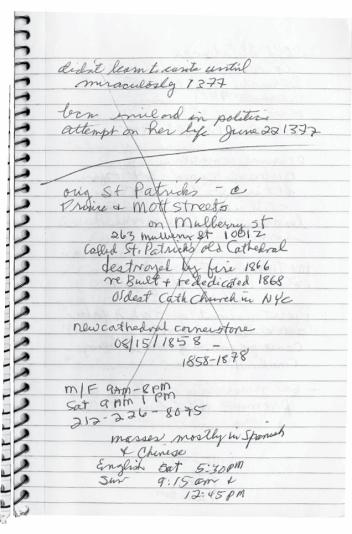 didn't learn to write until
miraculously 1377
born embroiled in politics
attempt on her life June 22 1377
orig St Patricks -
Prince & Mott Streets
on Mulberry St
263 mulberry st 10012
called St. Patricks old Cathedral
destroyed by fire 1866
re Built & rededicated 1868
oldest Cath Church in NYC
new cathedral cornerstone
08/15/1858 -
1858-1878
M/F 9AM-8pm
Sat 9 AM 1 PM
212-226-8075
masses mostly in Spanish
& Chinese
English Sat 5:30pm
Sun 9:15 am &
12:45 PM